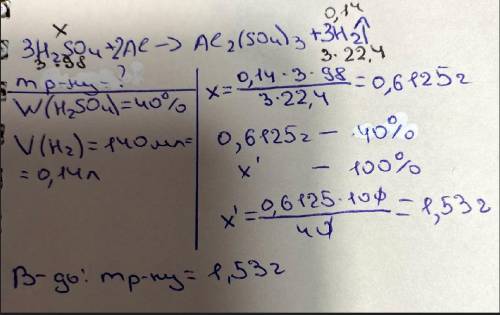 x 0,14
3H₂SO₄+2Al → Al₂(SO₄)₃ + 3H₂↑
3·98 3·22,4
m р-ну = ?
W(H₂SO₄)=40%
V(H₂)=140мл=
=0,14л
x = 0,14·3·98 / 3·22,4 = 0,6125г
0,6125г — 40%
x' — 100%
x' = 0,6125·100 / 40 = 1,53г
В-дь: m р-ну = 1,53г